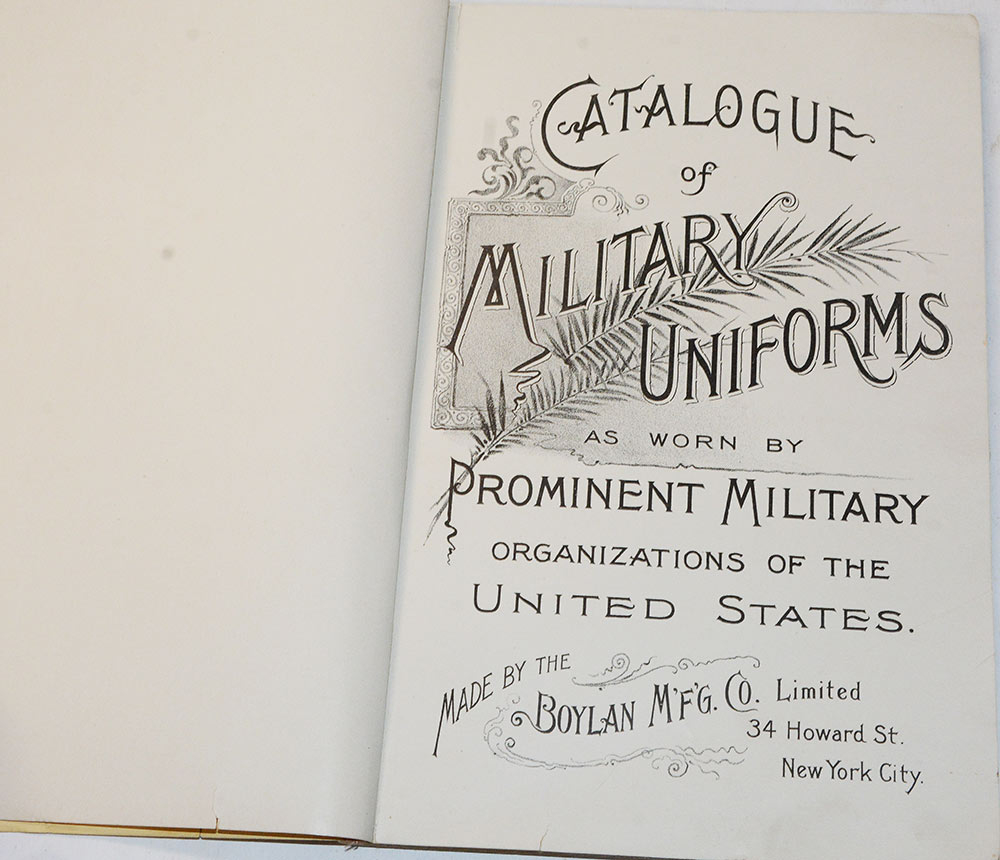 CATALOGUE
of
MILITARY
UNIFORMS
AS WORN BY
PROMINENT MILITARY
ORGANIZATIONS OF THE
UNITED STATES.
MADE BY THE
BOYLAN M'F'G. CO. Limited
34 Howard St.
New York City.